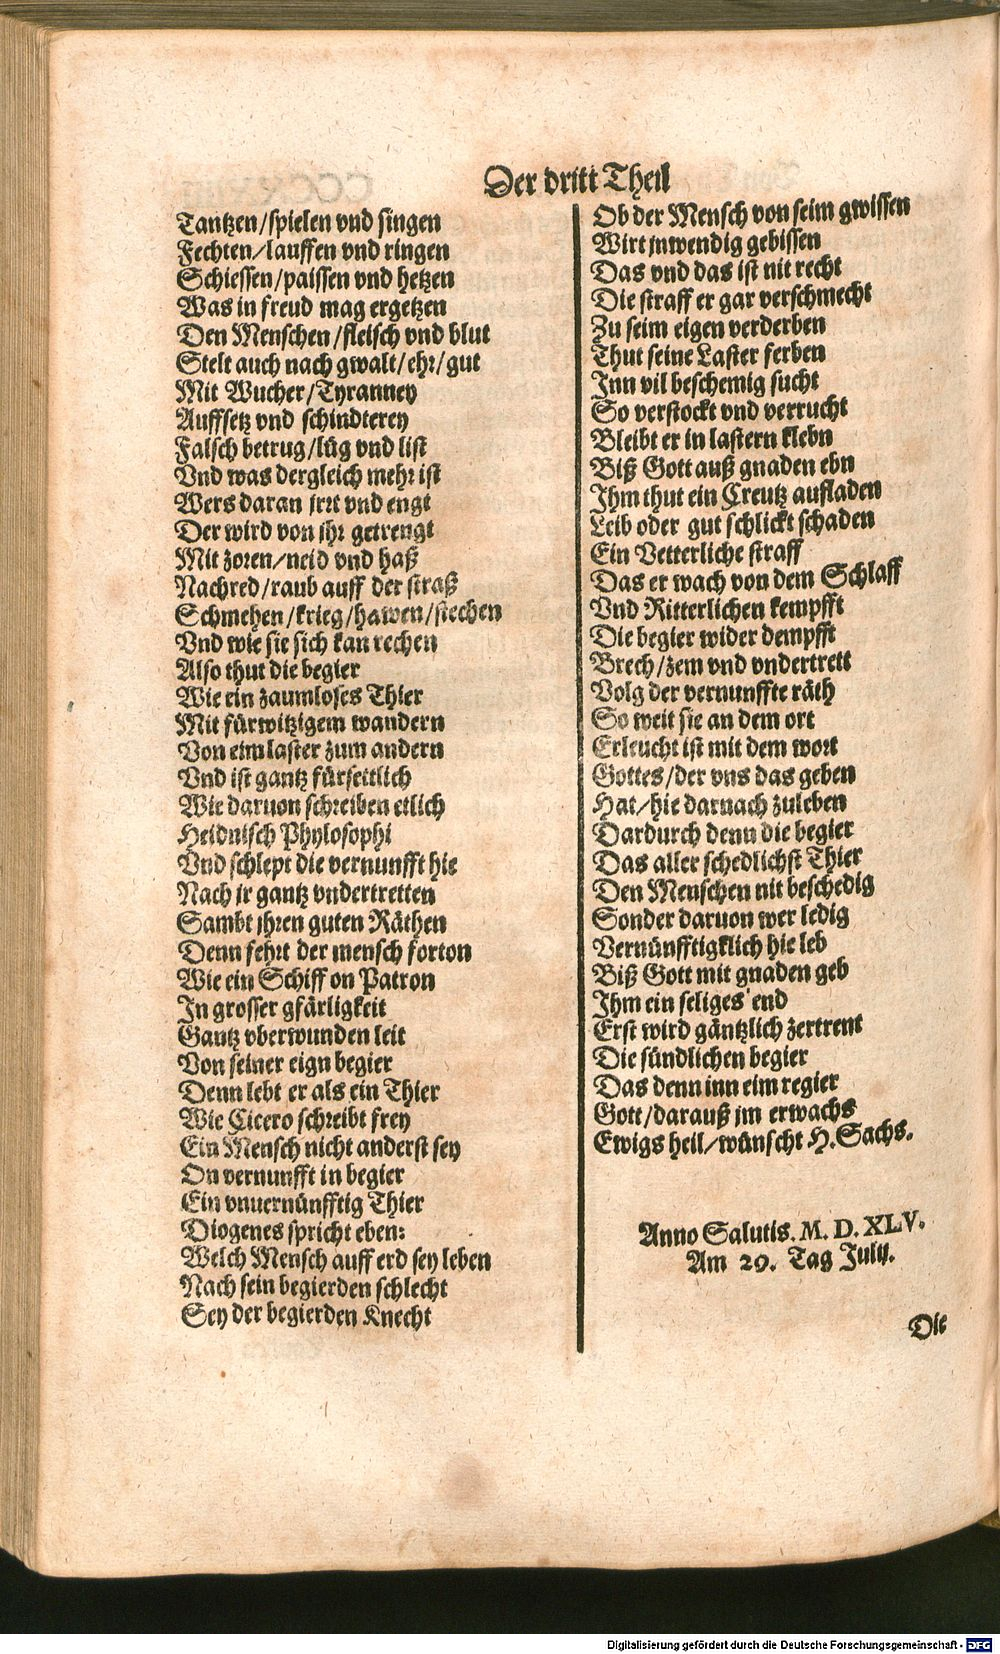 Der dritt Theil
Tantzen/spielen vnd singen
Fechten/lauffen vnd ringen
Schiessen/paissen vnd hetzen
Was in freud mag ergetzen
Den Menschen/fleisch vnd blut
Stelt auch nach gwalt/ehr/gut
Mit Wucher/Tyranney
Auffsetz vnd schinderey
Falsch betrug/lüg vnd list
Vnd was dergleich mehr ist
Wers daran jrrt vnd engt
Der wird von jhr getrengt
Mit zoren/neid vnd haß
Nachred/raub auff der straß
Schmehen/krieg/hawen/stechen
Vnd wie sie sich kan rechen
Also thut die begier
Wie ein zaumloses Thier
Mit fürwitzigem wandern
Von eim laster zum andern
Vnd ist gantz fürseitlich
Wie daruon schreiben etlich
Heidnisch Phylosophi
Vnd schlept die vernunfft hie
Nach jr gantz vndertretten
Sambt jhren guten Räthen
Denn fehrt der mensch forton
Wie ein Schiff on Patron
In grosser gfärligkeit
Gantz vberwunden leit
Von seiner eign begier
Denn lebt er als ein Thier
Wie Cicero schreibt frey
Ein Mensch nicht anderst sey
On vernunfft in begier
Ein vnuernünfftig Thier
Diogenes spricht eben:
Welch Mensch auff erd sey leben
Nach sein begierden schlecht
Sey der begierden Knecht
Ob der Mensch von seim gwissen
Wirt jnwendig gebissen
Das vnd das ist nit recht
Die straff er gar verschmecht
Zu seim eigen verderben
Thut seine Laster ferben
Inn vil beschemig sucht
So verstockt vnd verrucht
Bleibt er in lastern klebn
Biß Gott auß gnaden ebn
Ihm thut ein Creutz aufladen
Leib oder gut schlickt schaden
Ein Vetterliche straff
Das er wach von dem Schlaff
Vnd Ritterlichen kempfft
Die begier wider dempfft
Brech/zem vnd vndertrett
Volg der vernunffte räth
So weit sie an dem ort
Erleucht ist mit dem wort
Gottes/der vns das geben
Hat/hie darnach zuleben
Dardurch denn die begier
Das aller schedlichst Thier
Den Menschen nit beschedig
Sonder daruon wer ledig
Vernünfftigklich hie leb
Biß Gott mit gnaden geb
Ihm ein seliges end
Erst wird gäntzlich zertrent
Die sündlichen begier
Das denn inn eim regier
Gott/darauß jm erwachs
Ewigs heil/wünscht H. Sachs.
Anno Salutis. M. D. XLV.
Am 29. Tag Julij.
Die
Digitalisierung gefördert durch die Deutsche Forschungsgemeinschaft - DFG